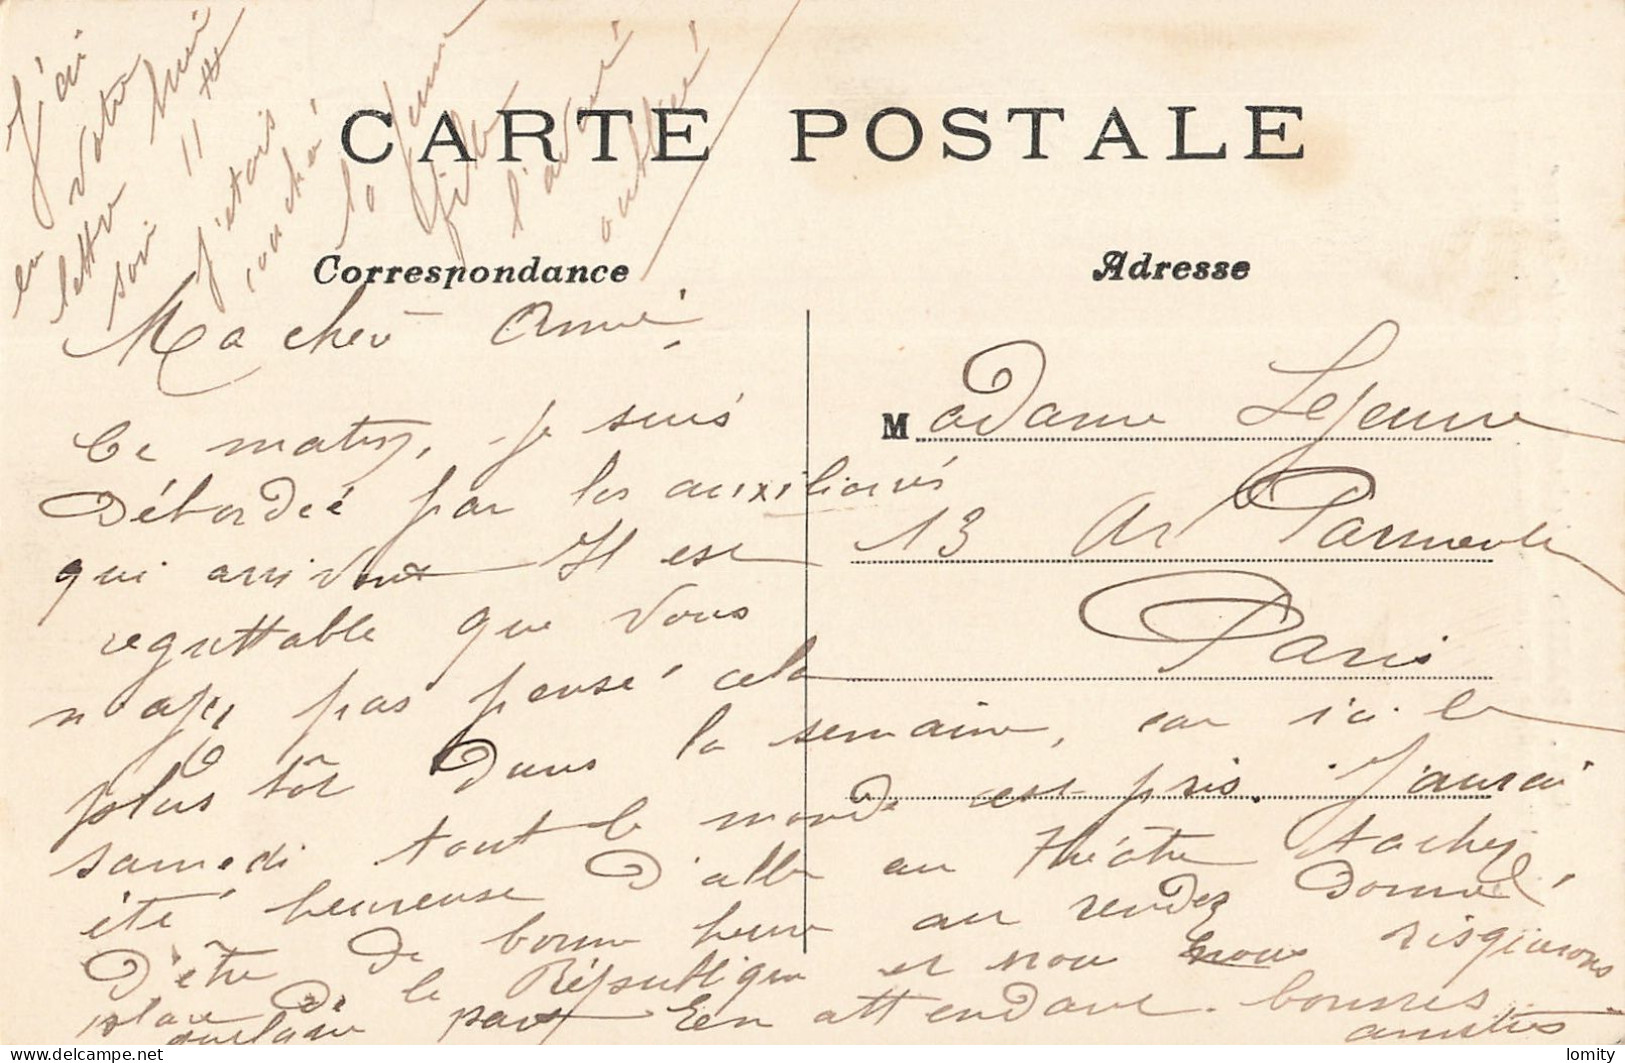 J'ai eu
votre
lettre hier
soir 11 H
j'étais
couché
la jeune
fille
l'avait
oublié
CARTE POSTALE
Correspondance
Adresse
Ma cher Amie,
Ce matin, je suis
Débordée par les auxiliaires
qui arrivent Il est
regrettable que vous
n'ayez pas pensé cela
plus tôt Dans la semaine, car ici le
samedi tout le monde est pris. J'aurai
été heureuse D'aller au théâtre tachez
D'être De bonne heure au rendez Donné,
place De la République et non nous risquerons
pas En attendant bonnes
amitiés
Madame Lejeune
13 Av Parmentier
Paris
lomity